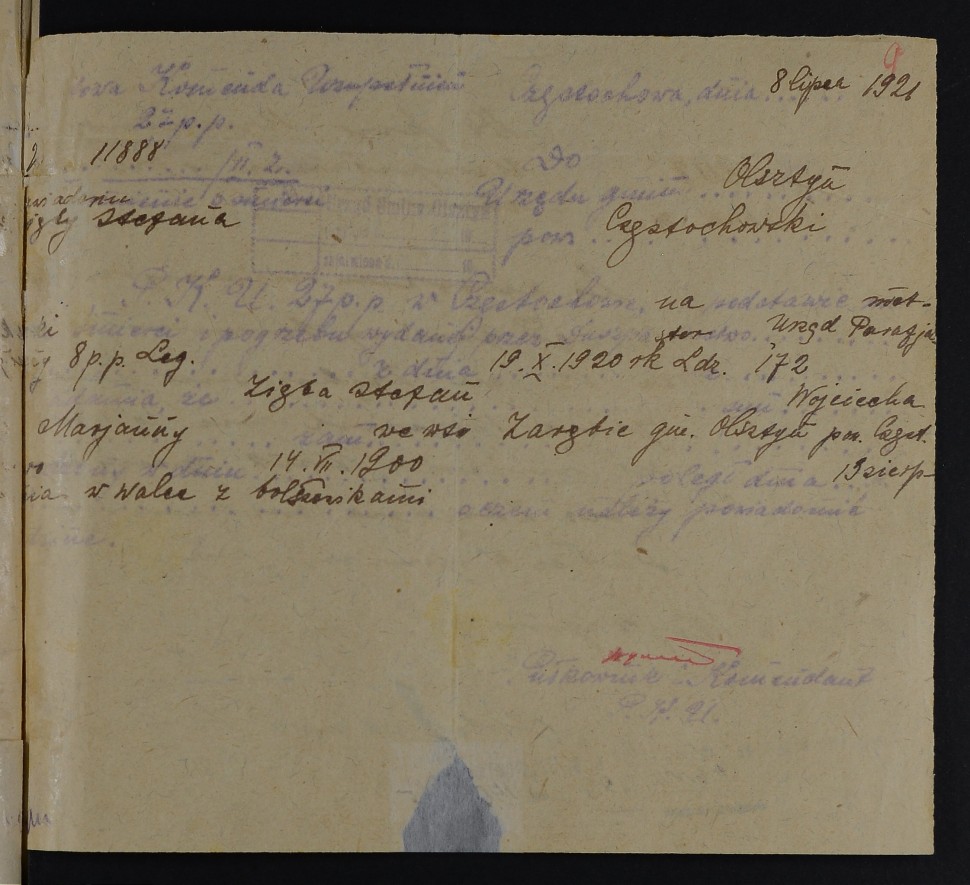 owa Komenda Uzupełnień Częstochowa, dnia 8 lipca 1921
27 p.p.
11888 /II. 2.
Do
Urzędu gminy Olsztyn
Stefana
pow. Częstochowski
P. K. U. 27 p.p. w Częstochowie, na podstawie met-
ki śmierci i pogrzebu wydanej przez Duszpasterstwo Urząd Parafja
8 p.p. Leg. z dnia 19.X.1920 rk Ldz. 172
że Zięba Stefan syn Wojciecha
Marjanny zam. we wsi Zarębie gm. Olsztyn pow. Częst.
w dniu 14.VII.1900 poległ dnia 13 sierp-
nia w walce z bolszewikami
o czem należy powiadomić
Pułkownik i Komendant
P. K. U.